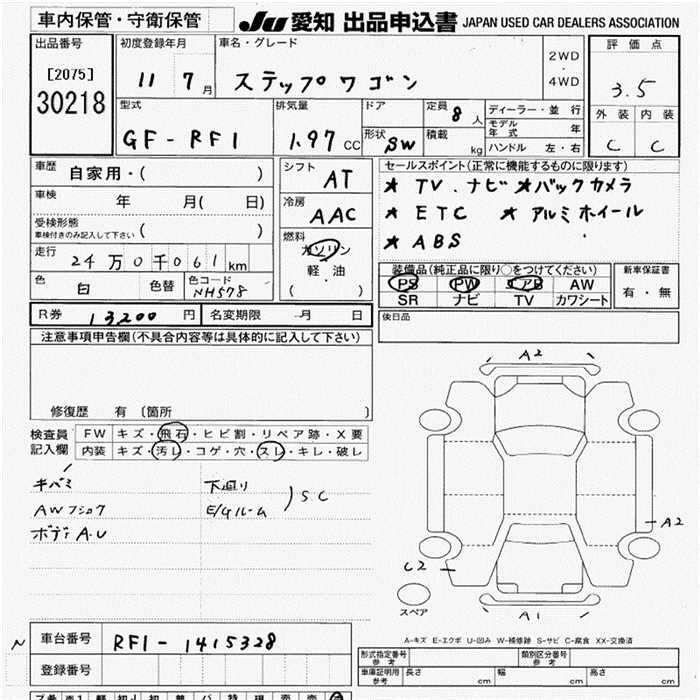 車内保管・守衛保管
JU 愛知 出品申込書 JAPAN USED CAR DEALERS ASSOCIATION
出品番号
[2075]
30218
初度登録年月
11 7月
車名・グレード
ステップワゴン
2WD
・
4WD
評価点
3.5
外装 内装
C C
型式
GF-RF1
排気量
1.97 CC
ドア
形状 SW
定員 8人
積載 kg
ディーラー・並行
モデル年式 年
ハンドル 左・右
車歴 自家用・( )
車検 年 月( 日)
受検形態
車検付きのみ記入して下さい ( )
走行 24万0千061km
色 白 色替 色コード NH578
シフト AT
冷房 AAC
燃料
ガソリン
軽・油
( )
セールスポイント(正常に機能するものに限ります)
★ TV.ナビ ★バックカメラ
★ ETC ★ アルミホイール
★ ABS
装備品(純正品に限り○をつけてください)
PS PW エアB AW
SR ナビ TV カワシート
新車保証書
有・無
R券 13200円 名変期限 月 日
後日品
注意事項申告欄(不具合内容等は具体的に記入して下さい)
修復歴 有〔箇所 〕
検査員記入欄
FW キズ・飛石・ヒビ割・リペア跡・X要
内装 キズ・汚レ・コゲ・穴・スレ・キレ・破レ
キバミ
AWフショク
ボディA.U
下廻り
E/Gルーム
)SC
A2
A2
C2
A1
スペア
A-キズ E-エクボ U-凹み W-補修跡 S-サビ C-腐食 XX-交換済
N 車台番号 RF1-1415328
登録番号
形式指定番号 参考
類別区分番号 参考
車庫証明用 参考 長さ cm 幅 cm 高さ cm